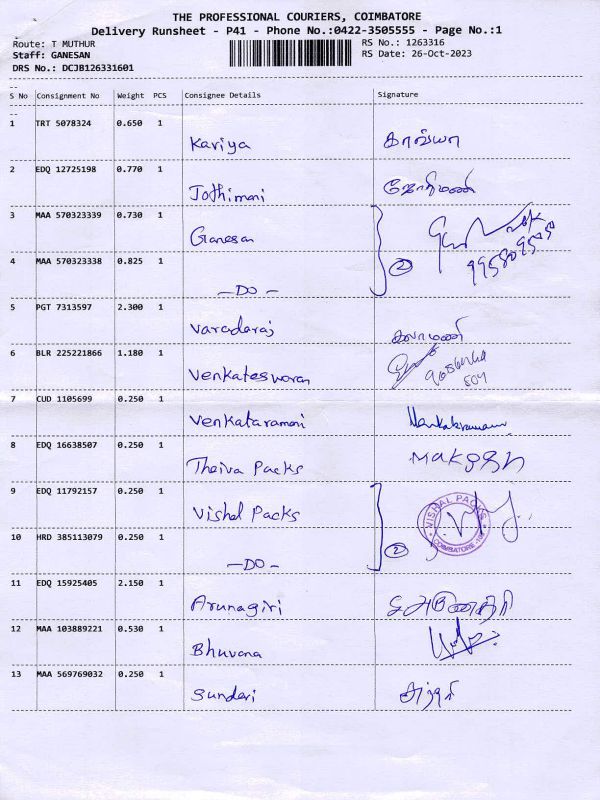 THE PROFESSIONAL COURIERS, COIMBATORE
Delivery Runsheet - P41 - Phone No.:0422-3505555 - Page No.:1
Route: T MUTHUR RS No.: 1263316
Staff: GANESAN RS Date: 26-Oct-2023
DRS No.: DCJB126331601
S No Consignment No Weight PCS Consignee Details Signature
1 TRT 5078324 0.650 1
Kaviya காவ்யா
2 EDQ 12725198 0.770 1
Jothimani ஜோதிமணி
3 MAA 570323339 0.730 1
Ganesan
4 MAA 570323338 0.825 1
2
—DO—
5 PGT 7313597 2.300 1
Varadaraj
6 BLR 225221866 1.180 1
Venkateswaran
7 CUD 1105699 0.250 1
Venkataramani
8 EDQ 16638507 0.250 1
Theiva Packs
9 EDQ 11792157 0.250 1
Vishal Packs VISHAL PACKS
COIMBATORE
10 HRD 385113079 0.250 1
2
—DO—
11 EDQ 15925405 2.150 1
Arunagiri
12 MAA 103889221 0.530 1
Bhuvana
13 MAA 569769032 0.250 1
Sundari